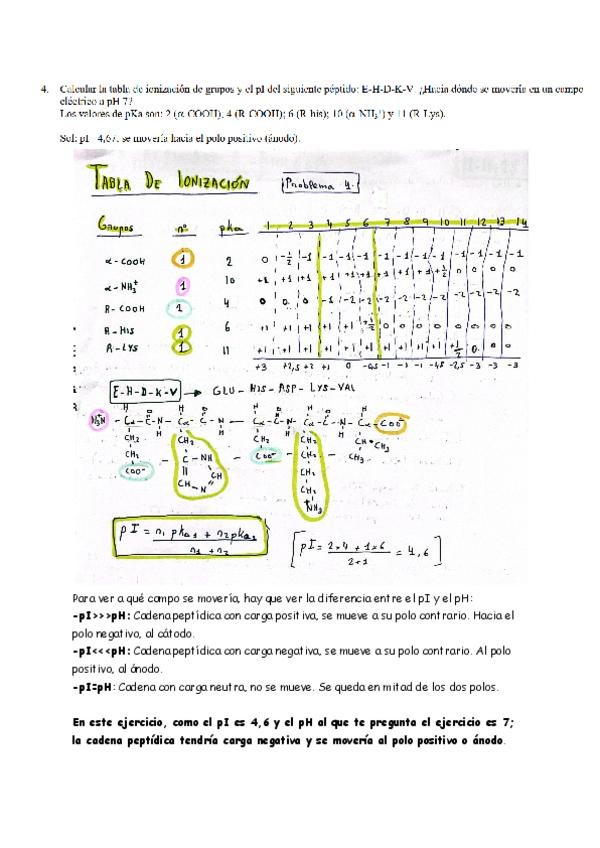 4. Calcular la tabla de ionización de grupos y el pI del siguiente péptido: E-H-D-K-V. ¿Hacia dónde se movería en un campo
eléctrico a pH 7?
Los valores de pKa son: 2 (α COOH); 4 (R COOH); 6 (R his); 10 (α NH₃⁺) y 11 (R Lys).
Sol: pI 4,67; se movería hacia el polo positivo (ánodo).
TABLA DE IONIZACIÓN Problema 4.
Grupos nº pka 1 2 3 4 5 6 7 8 9 10 11 12 13 14
α-COOH 1 2 0 -1/2 -1 -1 -1 -1 -1 -1 -1 -1 -1 -1 -1 -1
α-NH₃⁺ 1 10 +1 +1 +1 +1 +1 +1 +1 +1 +1 +1/2 0 0 0 0
R-COOH 4 0 0 0 -1 -2 -2 -2 -2 -2 -2 -2 -2 -2 -2
R-HIS 1 6 +1 +1 +1 +1 +1 +1/2 0 0 0 0 0 0 0 0
R-LYS 1 11 +1 +1 +1 +1 +1 +1 +1 +1 +1 +1 +1/2 0 0 0
+3 +2,5 +2 +1 0 -0,5 -1 -1 -1 -1,5 -2,5 -3 -3 -3
E-H-D-K-V → GLU-HIS-ASP-LYS-VAL
pI = n₁ pka₁ + n₂pka₂
n₁ + n₂
[pI = 2×4 + 1×6 = 4,6]
2+1
Para ver a qué campo se movería, hay que ver la diferencia entre el pI y el pH:
-pI>>>pH: Cadena peptídica con carga positiva, se mueve a su polo contrario. Hacia el
polo negativo, al cátodo.
-pI<<<pH: Cadena peptídica con carga negativa, se mueve a su polo contrario. Al polo
positivo, al ánodo.
-pI=pH: Cadena con carga neutra, no se mueve. Se queda en mitad de los dos polos.
En este ejercicio, como el pI es 4,6 y el pH al que te pregunta el ejercicio es 7;
la cadena peptídica tendría carga negativa y se movería al polo positivo o ánodo.